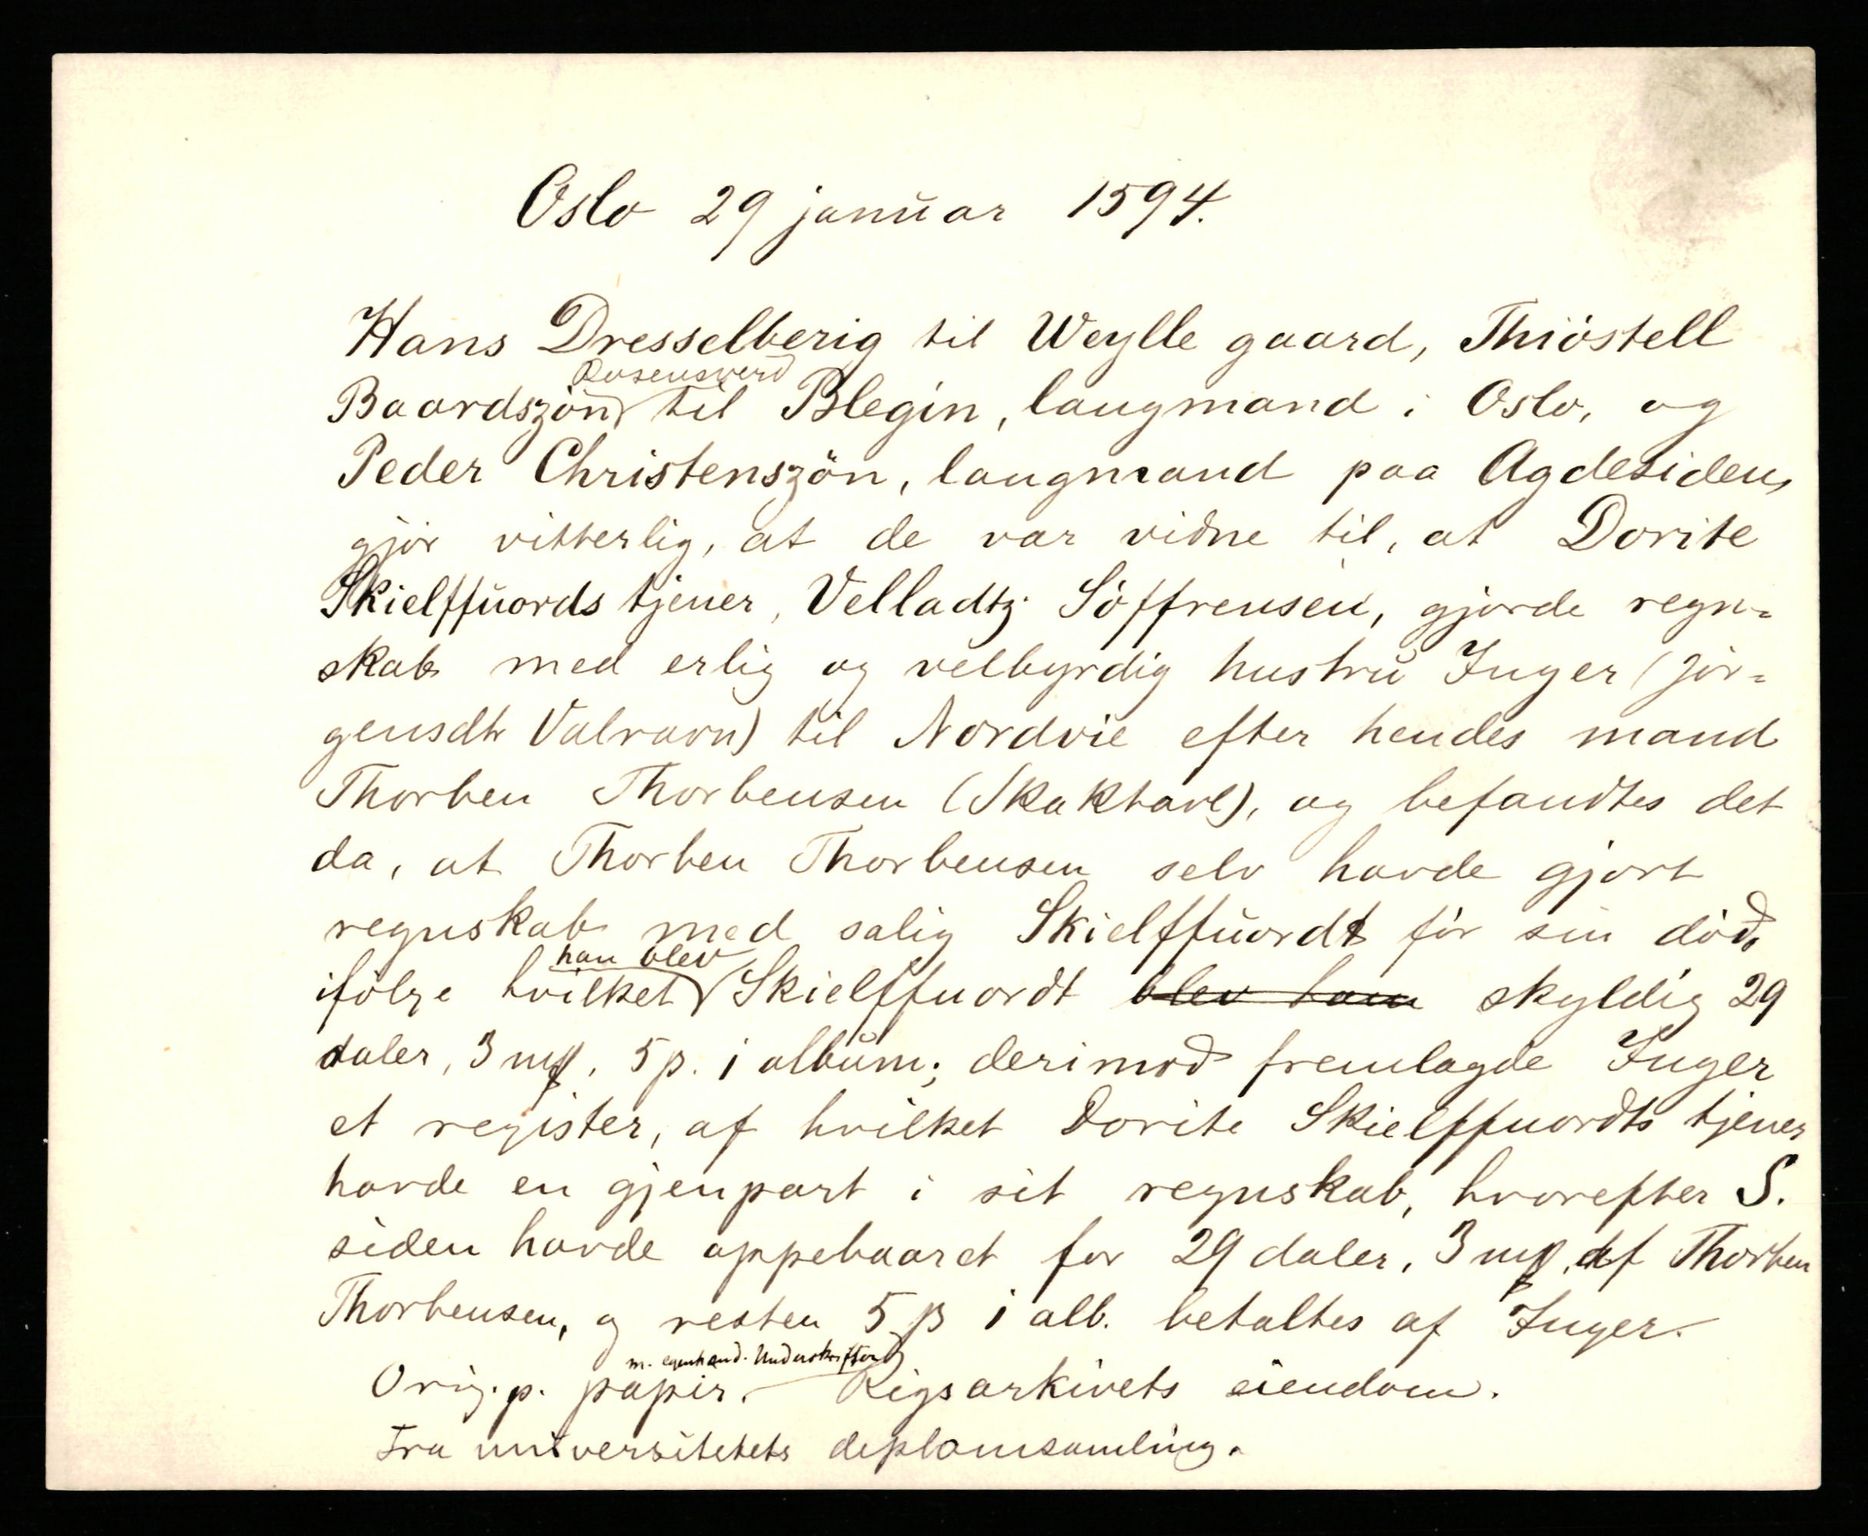 Oslo 29 januar 1594.
Hans Dresselberig til Weylle gaard, Thiöstell
Rosensverd
Baardszön til Blegin, laugmand i Oslo, og
Peder Christenszön, laugmand paa Agdesiden,
gjør vitterlig, at de var vidne til, at Dorite
Skielffuords tjener, Velladtz Söffrensen, gjorde regn=
skab med erlig og velbyrdig hustru Inger (Jör=
gensdtr Valravn) til Nordvie efter hendes mand
Thorben Thorbensen (Skaktavl), og befandtes det
da, at Thorben Thorbensen selv havde gjort
regnskab med salig Skielffuordt før sin död,
han blev
ifölge hvilket Skielffuordt blev ham skyldig 29
daler, 3 mk, 5 β. i album; derimod fremlagde Inger
et register, af hvilket Dorite Skielffuordts tjener
havde en gjenpart i sit regnskab, hvorefter S.
siden havde oppebaaret for 29 daler, 3 mk, af Thorben
Thorbensen, og resten 5 β i alb. betaltes af Inger.
m. egenhænd. Underskrifter
Orig. p. papir. Rigsarkivets eiendom.
Fra universitetets diplomsamling.